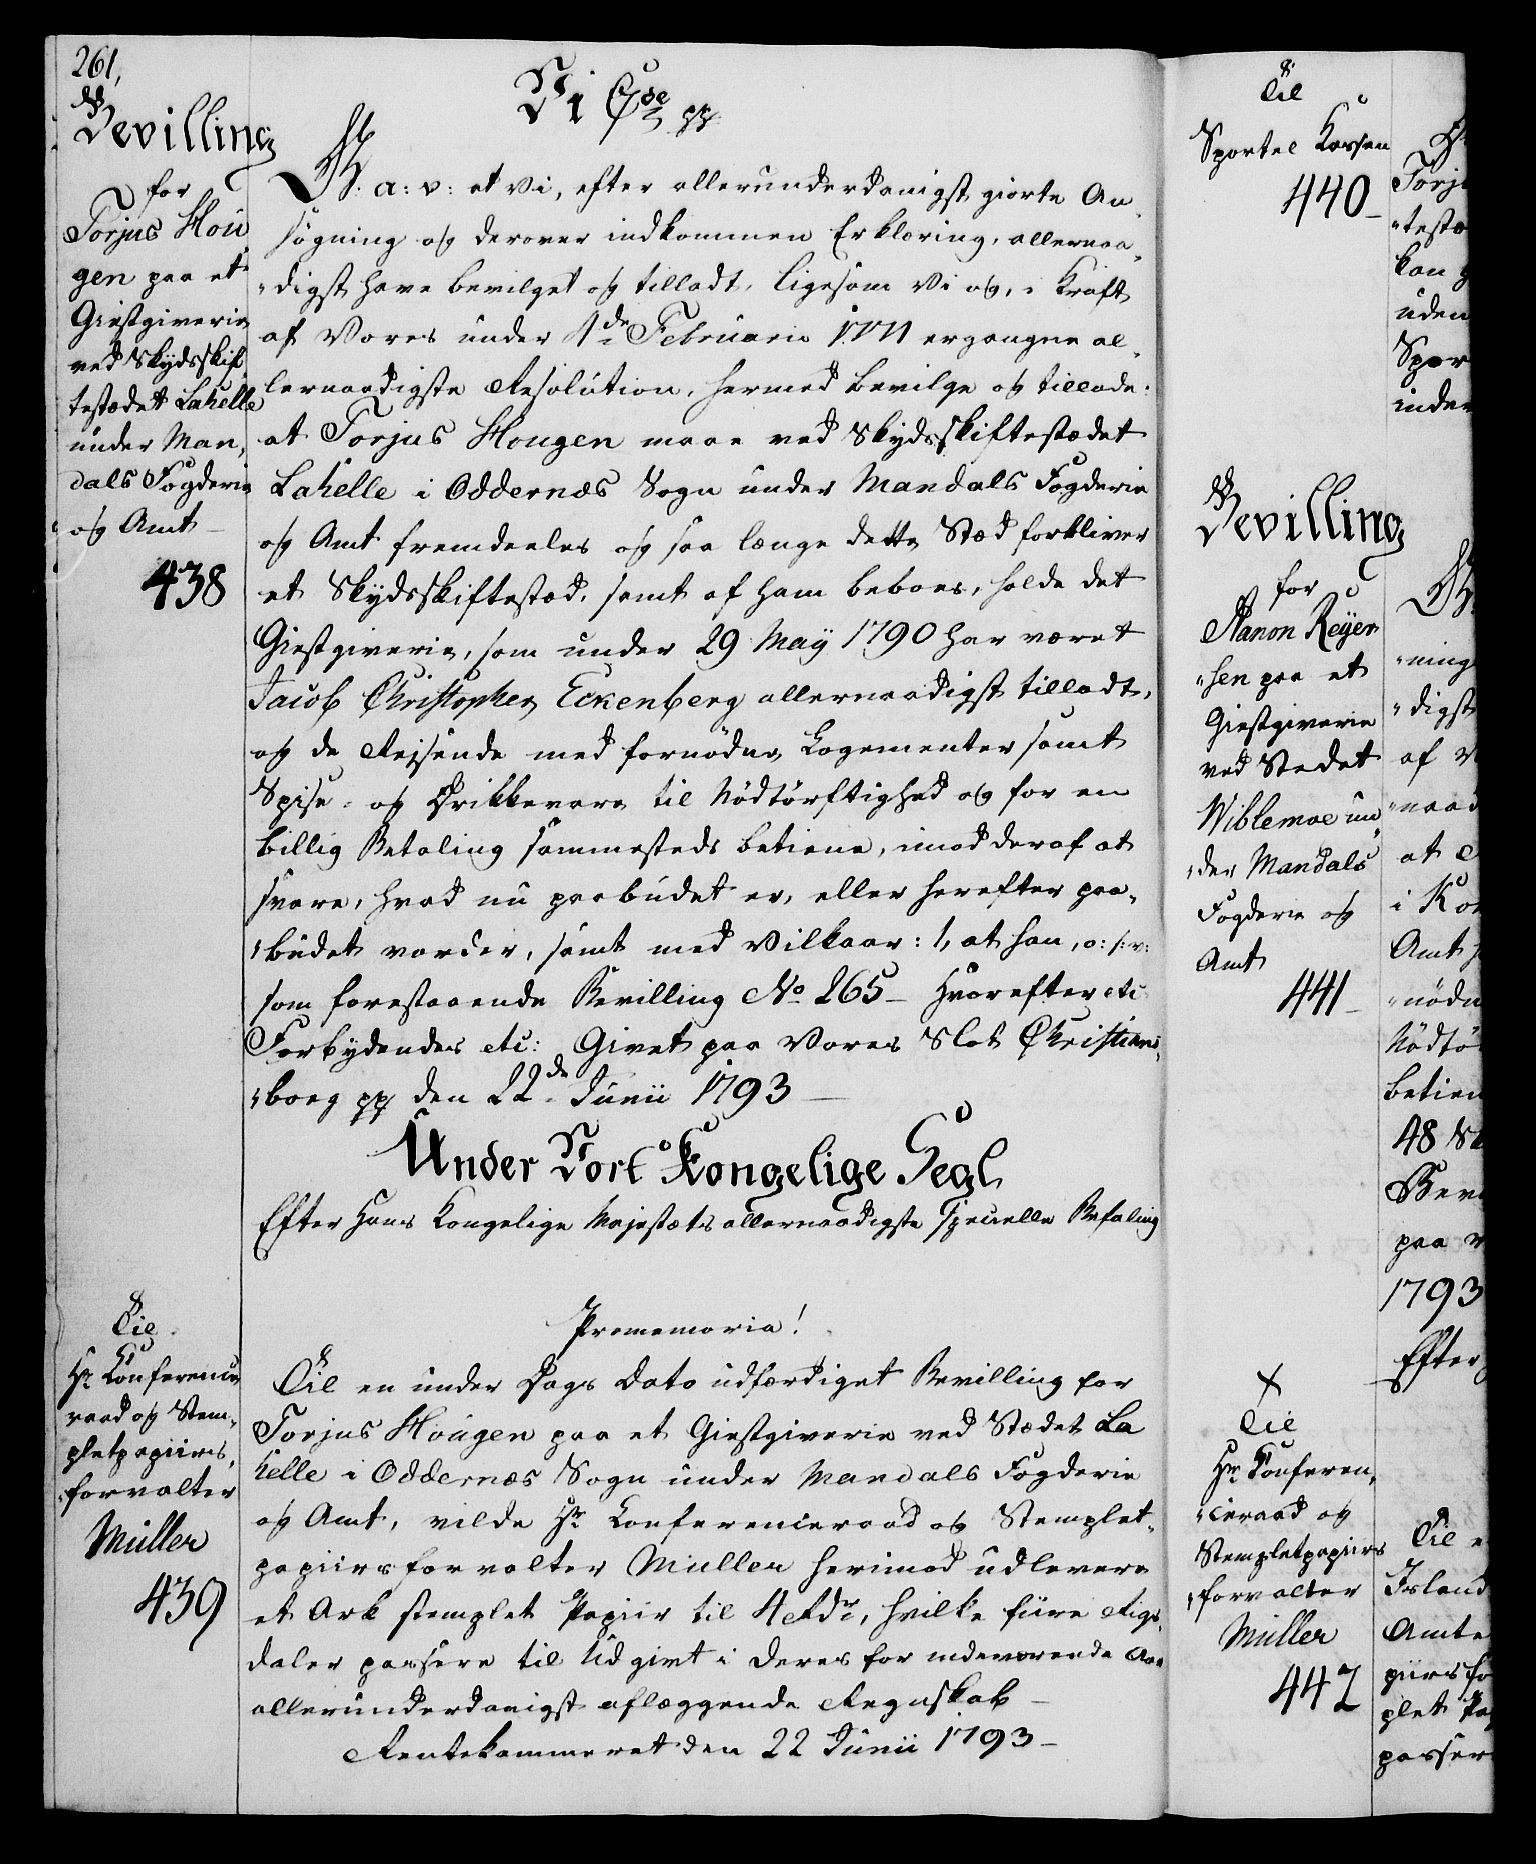 261,
Bevilling
for
Torjus Hou
gen paa et
Giestgiverie
ved Skydsskif„
testædet Lahelle
under Man„
dals Fogderie
og Amt
438
Vi C 7de pp
G. a: v: at vi, efter allerunderdanigst giorte An„
søgning og derover indkommen Erklæring, allernaa„
„digst have bevilget og tilladt, ligesom Vi og, i Kraft
af Vores under 1de Februarii 1771 ergangne al„
lernaadigste Resolution, hermed bevilge og tillade:
at Torjus Hougen maae ved Skydsskiftestædet
Lahelle i Oddernæs Sogn under Mandals Fogderie
og Amt fremdeeles og saa længe dette Stæd forbliver
et Skydsskiftestæd, samt af ham beboes, holde det
Giestgiverie, som under 29 Maÿ 1790 har været
Jacob Christopher Eckenberg allernaadigst tilladt,
og de Reisende med fornødne Logementer samt
Spise- og Drikkevare til Nødtørftighed og for en
billig Betaling sammesteds betiene, imod deraf at
svare, hvad nu paabudet er, eller herefter paa„
„budet vorder, samt med Vilkaar: 1, at han, o: s: v:
som forestaaende Bevilling No 265 – Hvorefter etc
Forbydendes etc: Givet paa Vores Slot Christians„
„borg pp den 22de Junii 1793 –
Under Vort Kongelige Segl
Efter Hans Kongelige Majestæts allernaadigste specielle Befaling
Til
Hr Conference
raad og Stem„
pletpapiirs„
forvalter
Müller
439
Promemoria!
Til en under Dags Dato udfærdiget Bevilling for
Torjus Hougen paa et Giestgiverie ved Stædet La
helle i Oddernæs Sogn under Mandals Fogderie
og Amt, vilde Hr Conferenceraad og Stemplet„
papiirsforvalter Müller herimod udlevere
et Ark stemplet Papiir til 4 Rdr, hvilke fiire Rigs„
daler passere til Udgivt i Deres for indeværende Aar
allerunderdanigst aflæggende Regnskab –
Rentekammeret den 22 Junii 1793 –
Til
Sportel Kassen
440 –
Bevilling
for
Aanon Reÿer
„sen paa et
Giestgiverie
ved Stedet
Wiblemoe un„
„der Mandals
Fogderie og
Amt
441 –
Til
Hr Conferen„
„ceraad og
Stempletpapiirs
„forvalter
Müller
442
Torju
„testæ
kan g
uden
Spor
inde
„ning
„digst
af V
„naad
at
i Ko
Amt
„nødn
Nødtø
betien
48 Sk
Bevi
paa v
1793
Efter
Til e
Island
Amte
piirsfo
plet Pap
passer